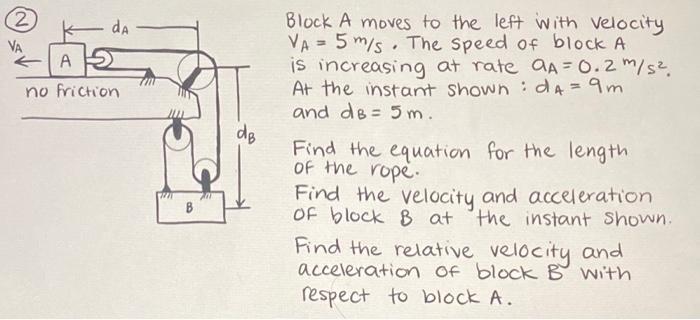 2
dA
VA
A
no friction
dB
B
Block A moves to the left with velocity
VA = 5 m/s. The speed of block A
is increasing at rate aA = 0.2 m/s².
At the instant shown : dA = 9m
and dB = 5m.
Find the equation for the length
of the rope.
Find the velocity and acceleration
of block B at the instant shown.
Find the relative velocity and
acceleration of block B with
respect to block A.